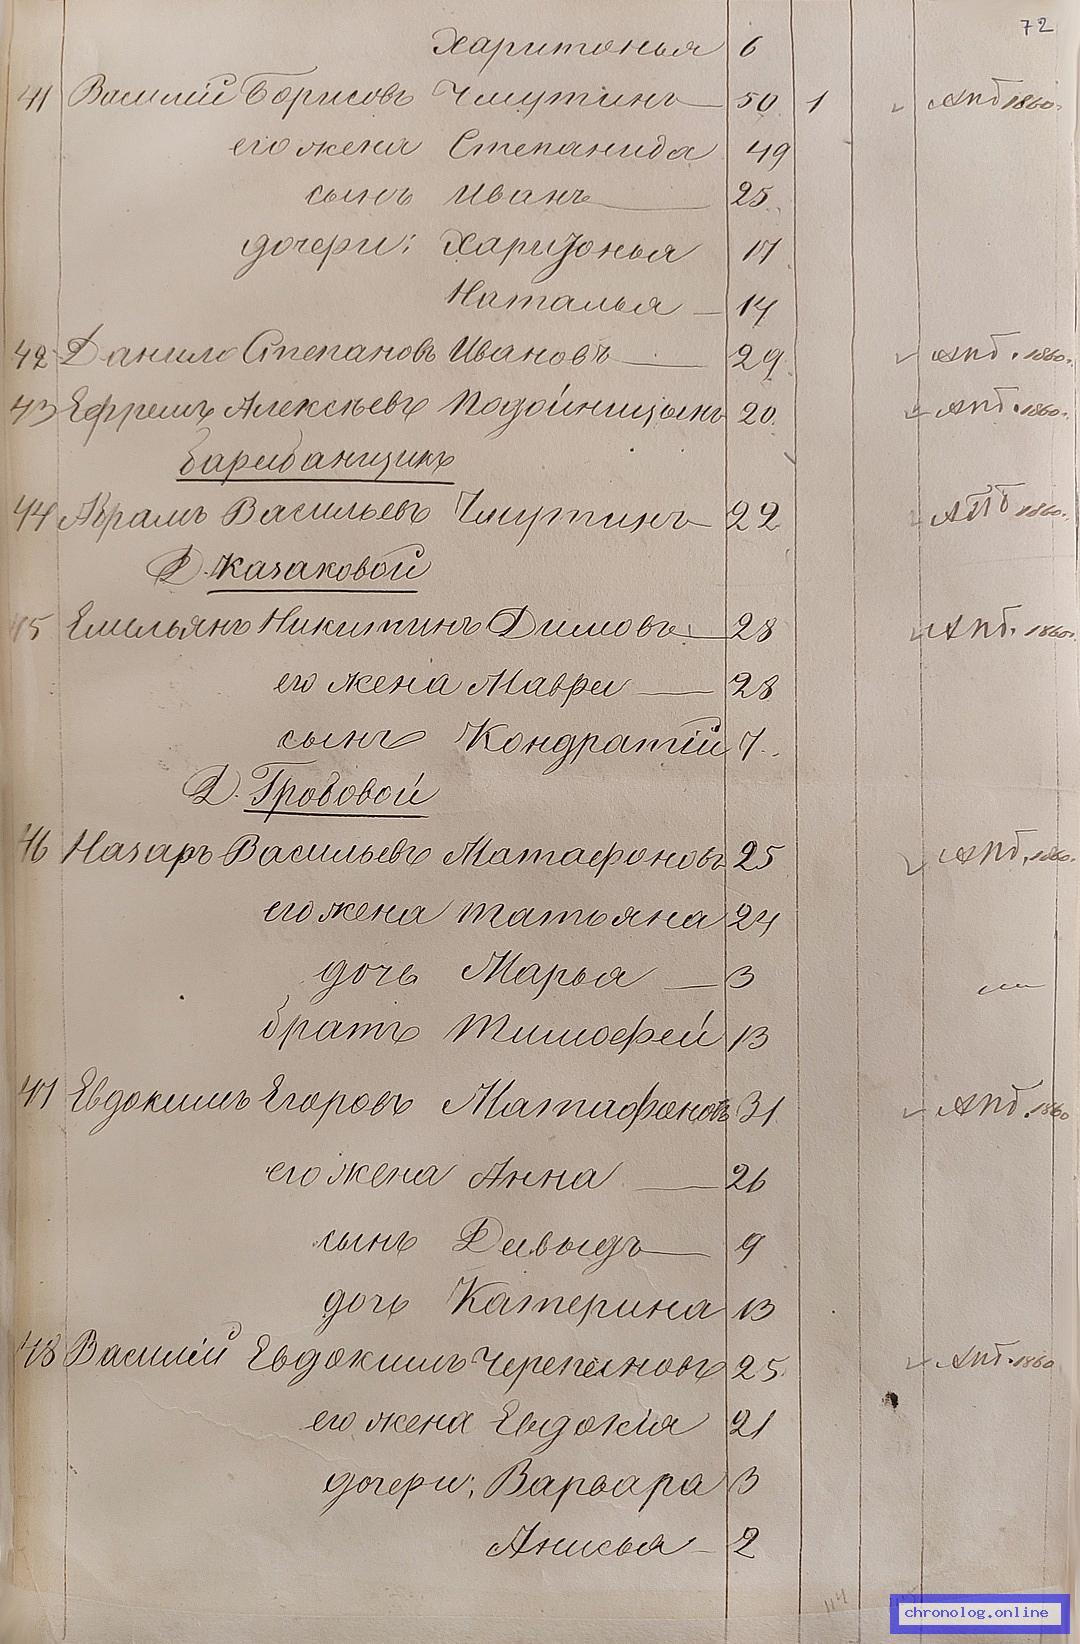 72
Харитонья 6
41 Василій Борисовъ Чмутинъ 50 1 Апб 1860.
его жена Степанида 49
сынъ Иванъ 25
дочери: Харитонья 17
Наталья 14
42 Данило Степановъ Ивановъ 29 Апб. 1860.
43 Ефремъ Алексѣевъ Подойницынъ 20 Апб. 1860.
барабанщикъ
44 Аврамъ Васильевъ Чмутинъ 22 Апб 1860.
Д. Казаковой
45 Емельянъ Никитинъ Димовъ 28 Апб. 1860.
его жена Мавра 28
сынъ Кондратій 7
Д. Грововой
46 Назаръ Васильевъ Матафоновъ 25 Апб. 1860.
его жена Татьяна 24
дочь Марья 3
братъ Тимофей 13
47 Евдокимъ Егоровъ Матафоновъ 31 Апб. 1860
его жена Анна 26
сынъ Давыдъ 9
дочь Катерина 13
48 Василій Евдокимъ Черепановъ 25 Апб. 1860
его жена Евдокія 21
дочери: Варвара 3
Анисья 2
chronolog.online